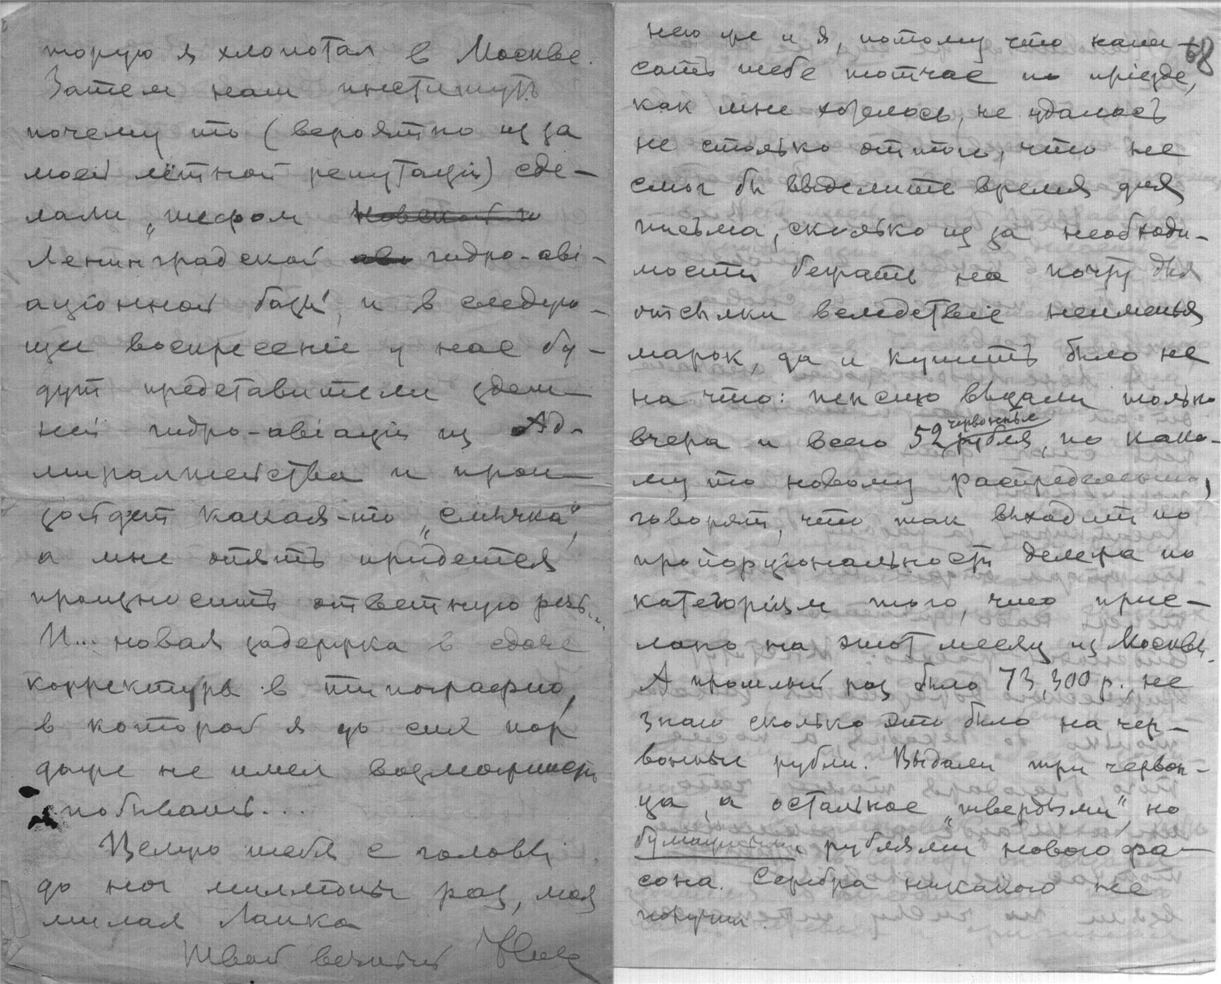 торую я хлопотал в Москве.
Затем наш институтъ
почему то (вероятно из за
моей лѣтной репутаціи) сде-
лали „шефом
Ленинградской гидро-аві-
аціонной базы", и в следую-
щее воскресеніе у нас бу-
дут представители здеш-
ней гидро-авіаціи из Ад-
миралтейства и прои-
зойдет какая-то „смычка",
а мне опять придется
произносить ответную речь...
И... новая задержка в сдаче
корректуры в типографію,
в которой я до сих пор
даже не имел возможности
побывать...
Целую тебя с головы
до ног миллионы раз, моя
милая Лапка
Твой вечный
68
нею же и я, потому что напи-
сать тебе тотчас по пріезде,
как мне хотелось, не удалось
не столько оттого, что не
смог бы выделить время для
письма, сколько из за необходи-
мости бежать на почту для
отсылки вследствіе неименья
марок, да и купить было не
на что: пенсию выдали только
червонные
вчера и всего 52 рубля, по како-
му то новому распределенью,
говорят, что так выходит по
пропорціональности дележа по
категоріям того, что прис-
лано на этот месяц из Москвы.
А прошлый раз было 73,300 р., не
знаю сколько это было на чер-
вонные рубли. Выдали три червон-
ца, а остальное „твердыми", но
бумажными рублями нового фа-
сона. Серебра никакого не
получил.